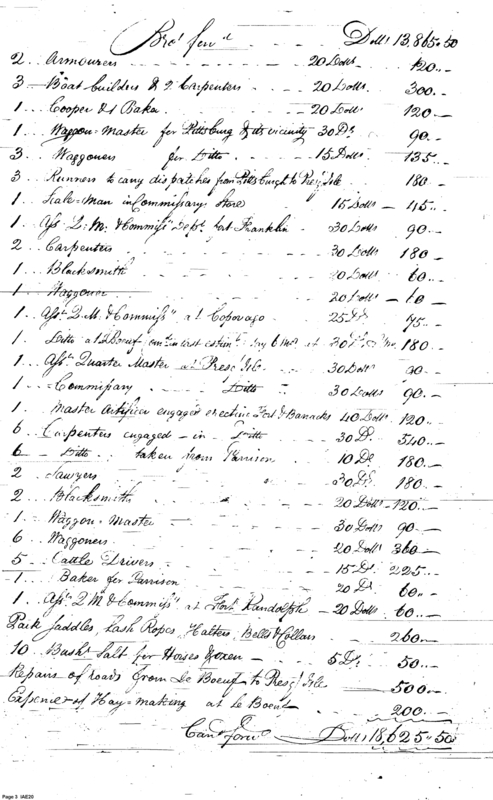 Bro.t for.d - - - Dolls 13,865..50
2 .. Armourers - - - 20 Dolls 120..-
3 - Boat builders & 2 Carpenters - - 20 Dolls 300..-
1 ... Cooper & 1 Baker - - - 20 Dolls 120
1 ... Waggon-Master for Pittsburg & its vicinity 30 Ds. 90..
3 .. Waggoners for Ditto - - - 15 Dolls 135..
3 .. Runners to carry dispatches from Pittsburgh to Presq' Isle 180
1 .. Scale-man in Commissary Stores 15 Dolls - 45..
1 .. Asst Q. M. & Commiss.y Dept. fort Franklin - 30 Dolls 90..-
2 .. Carpenters 30 Dolls 180 -
1 .. Blacksmith 20 Dolls 60..-
1 .. Waggoner 20 Dolls - 60 -
1 .. Asst. Q. M. & Commiss.y at 25 Ds. 75..-
1 .. Ditto at Le Boeuf om.d in last estim.e 6 mos. at 30 180 -
1 .. Asst. Quarter Master at Presq' Isle 30 Dolls 90..-
1 .. Commissary - - Ditto 30 Dolls 90..-
1 .. Master Artificer engaged erecting Fort & Barracks 40 Dolls 120..-
6 .. Carpenters engaged - in - Ditto - - 30 Ds. 540..-
6 - Ditto - taken from Garrison 10 Ds 180..-
2 .. Sawyers 30 Ds 180..-
2 .. Blacksmith 20 Dolls - 120..-
1 .. Waggon-Master 30 Dolls 90..-
6 .. Waggoners 20 Dolls 360..-
5 .. Cattle Drivers 15 Ds. 225..-
1 .. Baker for Garrison 20 Ds. 60..-
1 .. Asst. Q M & Commiss.y at Fort Randolph - 20 Dolls 60..-
Pack Saddles, Lash Ropes, Halters, Bells & Collars 260..-
10 .. Bush.s Salt for Horses & oxen - 5 Ds. 50..-
Repairs of roads from Le Boeuf to Presq' Isle - 500..-
Expences of Hay-making at le Boeuf 200..-
Card forw.d - Dolls 18,625..50
Page 3 IAE20